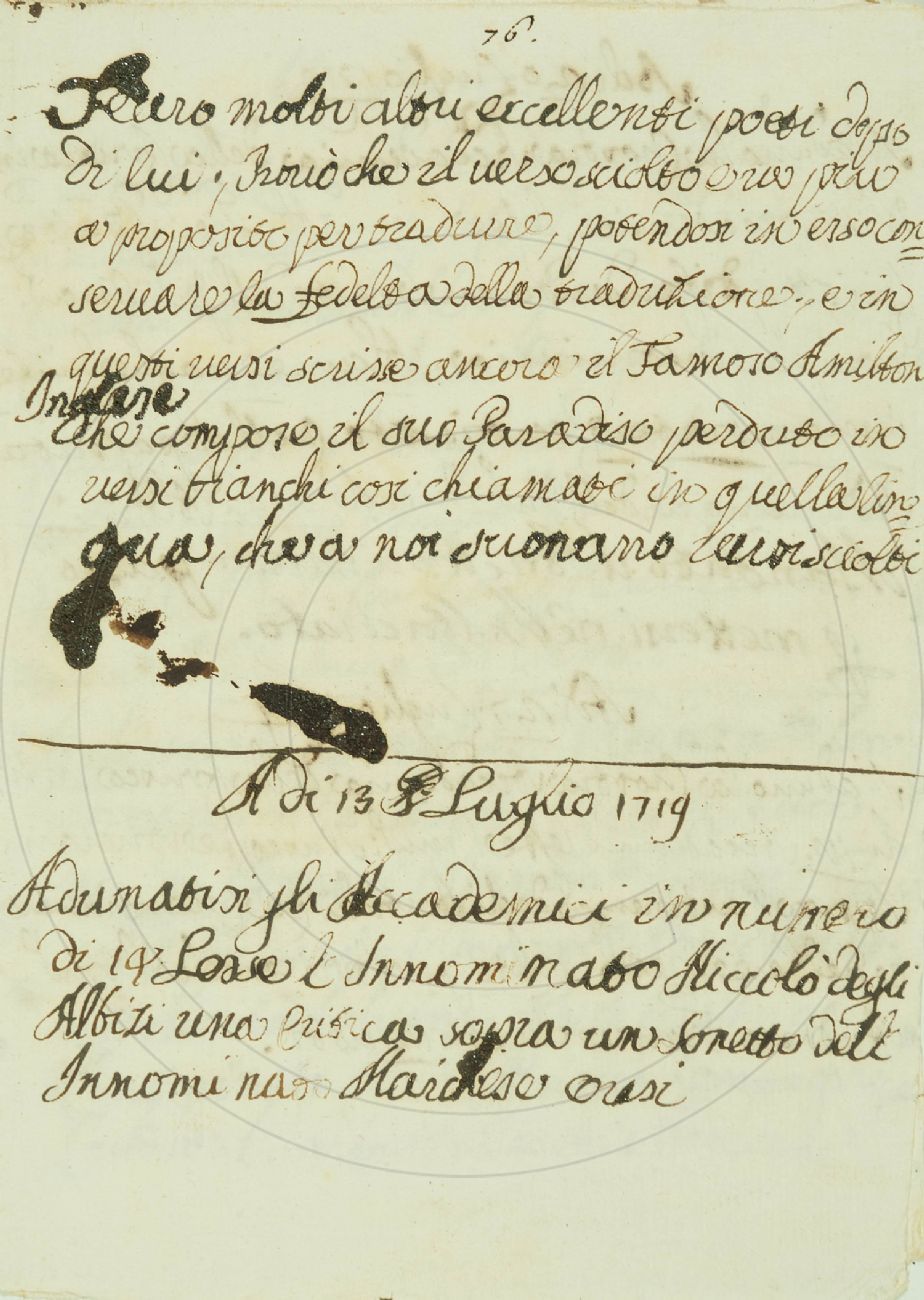 76.
Fecero molti altri eccellenti poeti dopo
di lui; Provò che il verso sciolto era più
a proposito per tradurre, potendosi in esso con=
servare la fedeltà della traduzione, e in
questi versi scrisse ancora il Famoso Amilton
Inglese
che compose il suo Paradiso perduto in
versi bianchi così chiamati in quella lin=
gua, che a noi suonano versi sciolti
A di 13 Luglio 1719
Adunatisi gli Accademici in numero
di Lesse l'Innominato Niccolò degli
Albizi una Critica sopra un Sonetto dell'
Innominato Marchese Orsi